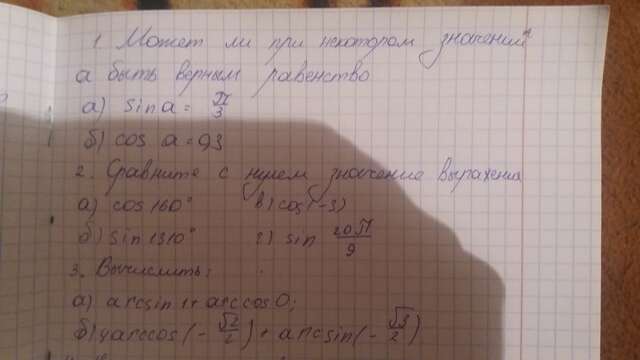 1. Может ли при некотором значении
а быть верным равенство
а) sin a = π/3
б) cos a = 0,3
2. Сравните с нулем значение выражения
а) cos 160° в) cos(-3)
б) sin 1310° г) sin 20π/9
3. Вычислить:
а) arcsin 1 + arccos 0;
б) 4arccos(-√2/2) + arcsin(-√3/2)